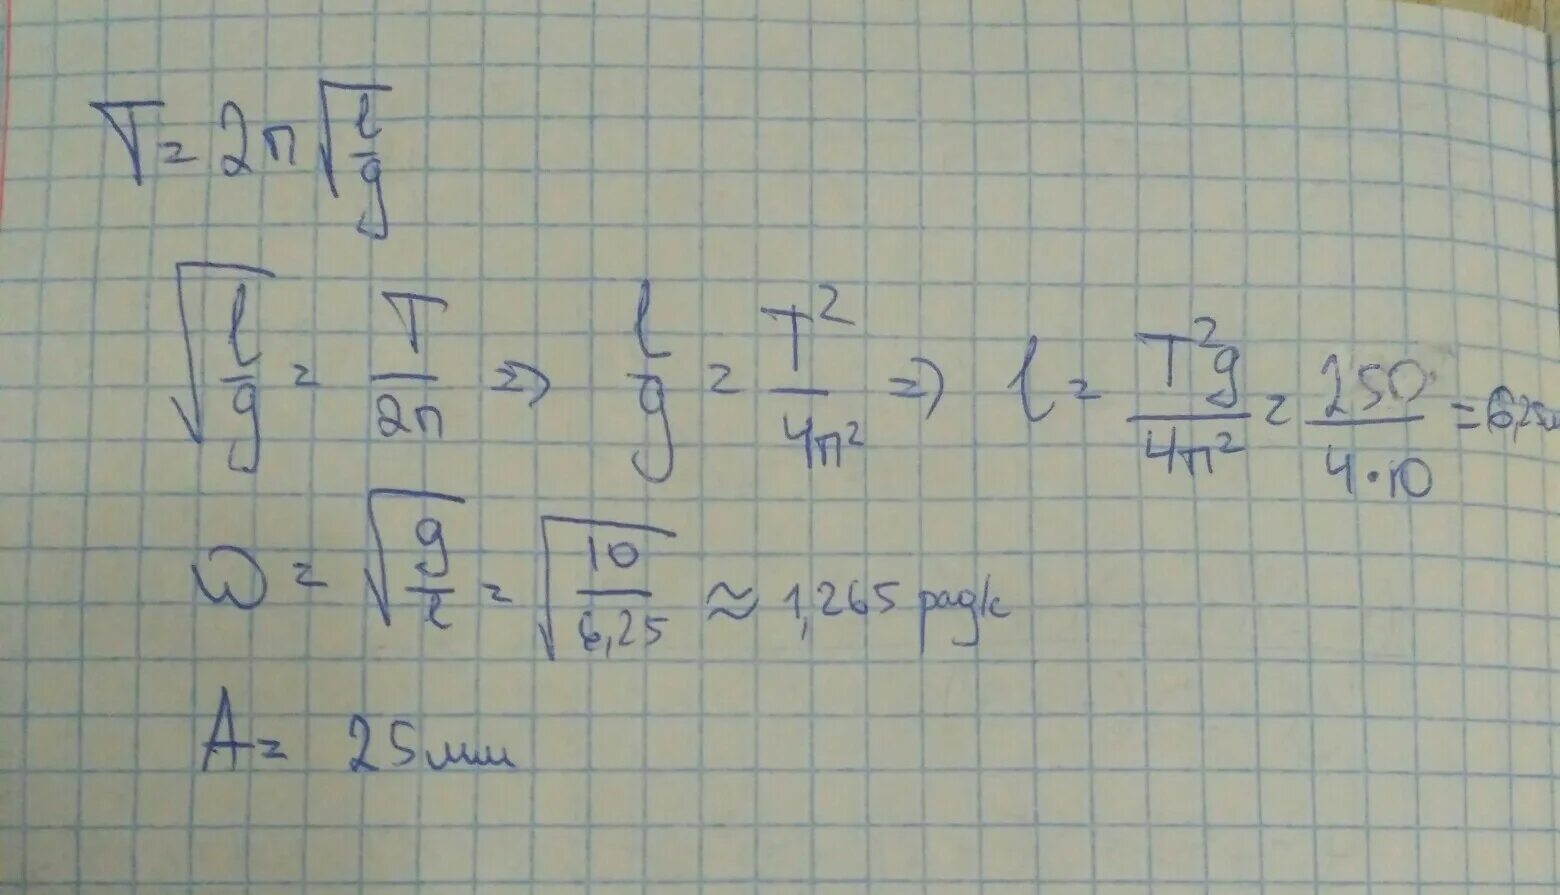 T = 2п√(l/g)
√(l/g) = T/2п => l/g = T²/4п² => l = T²g/4п² = 250/4·10 = 6,25м
ω = √(g/l) = √(10/6,25) ≈ 1,265 рад/с
A = 25мм